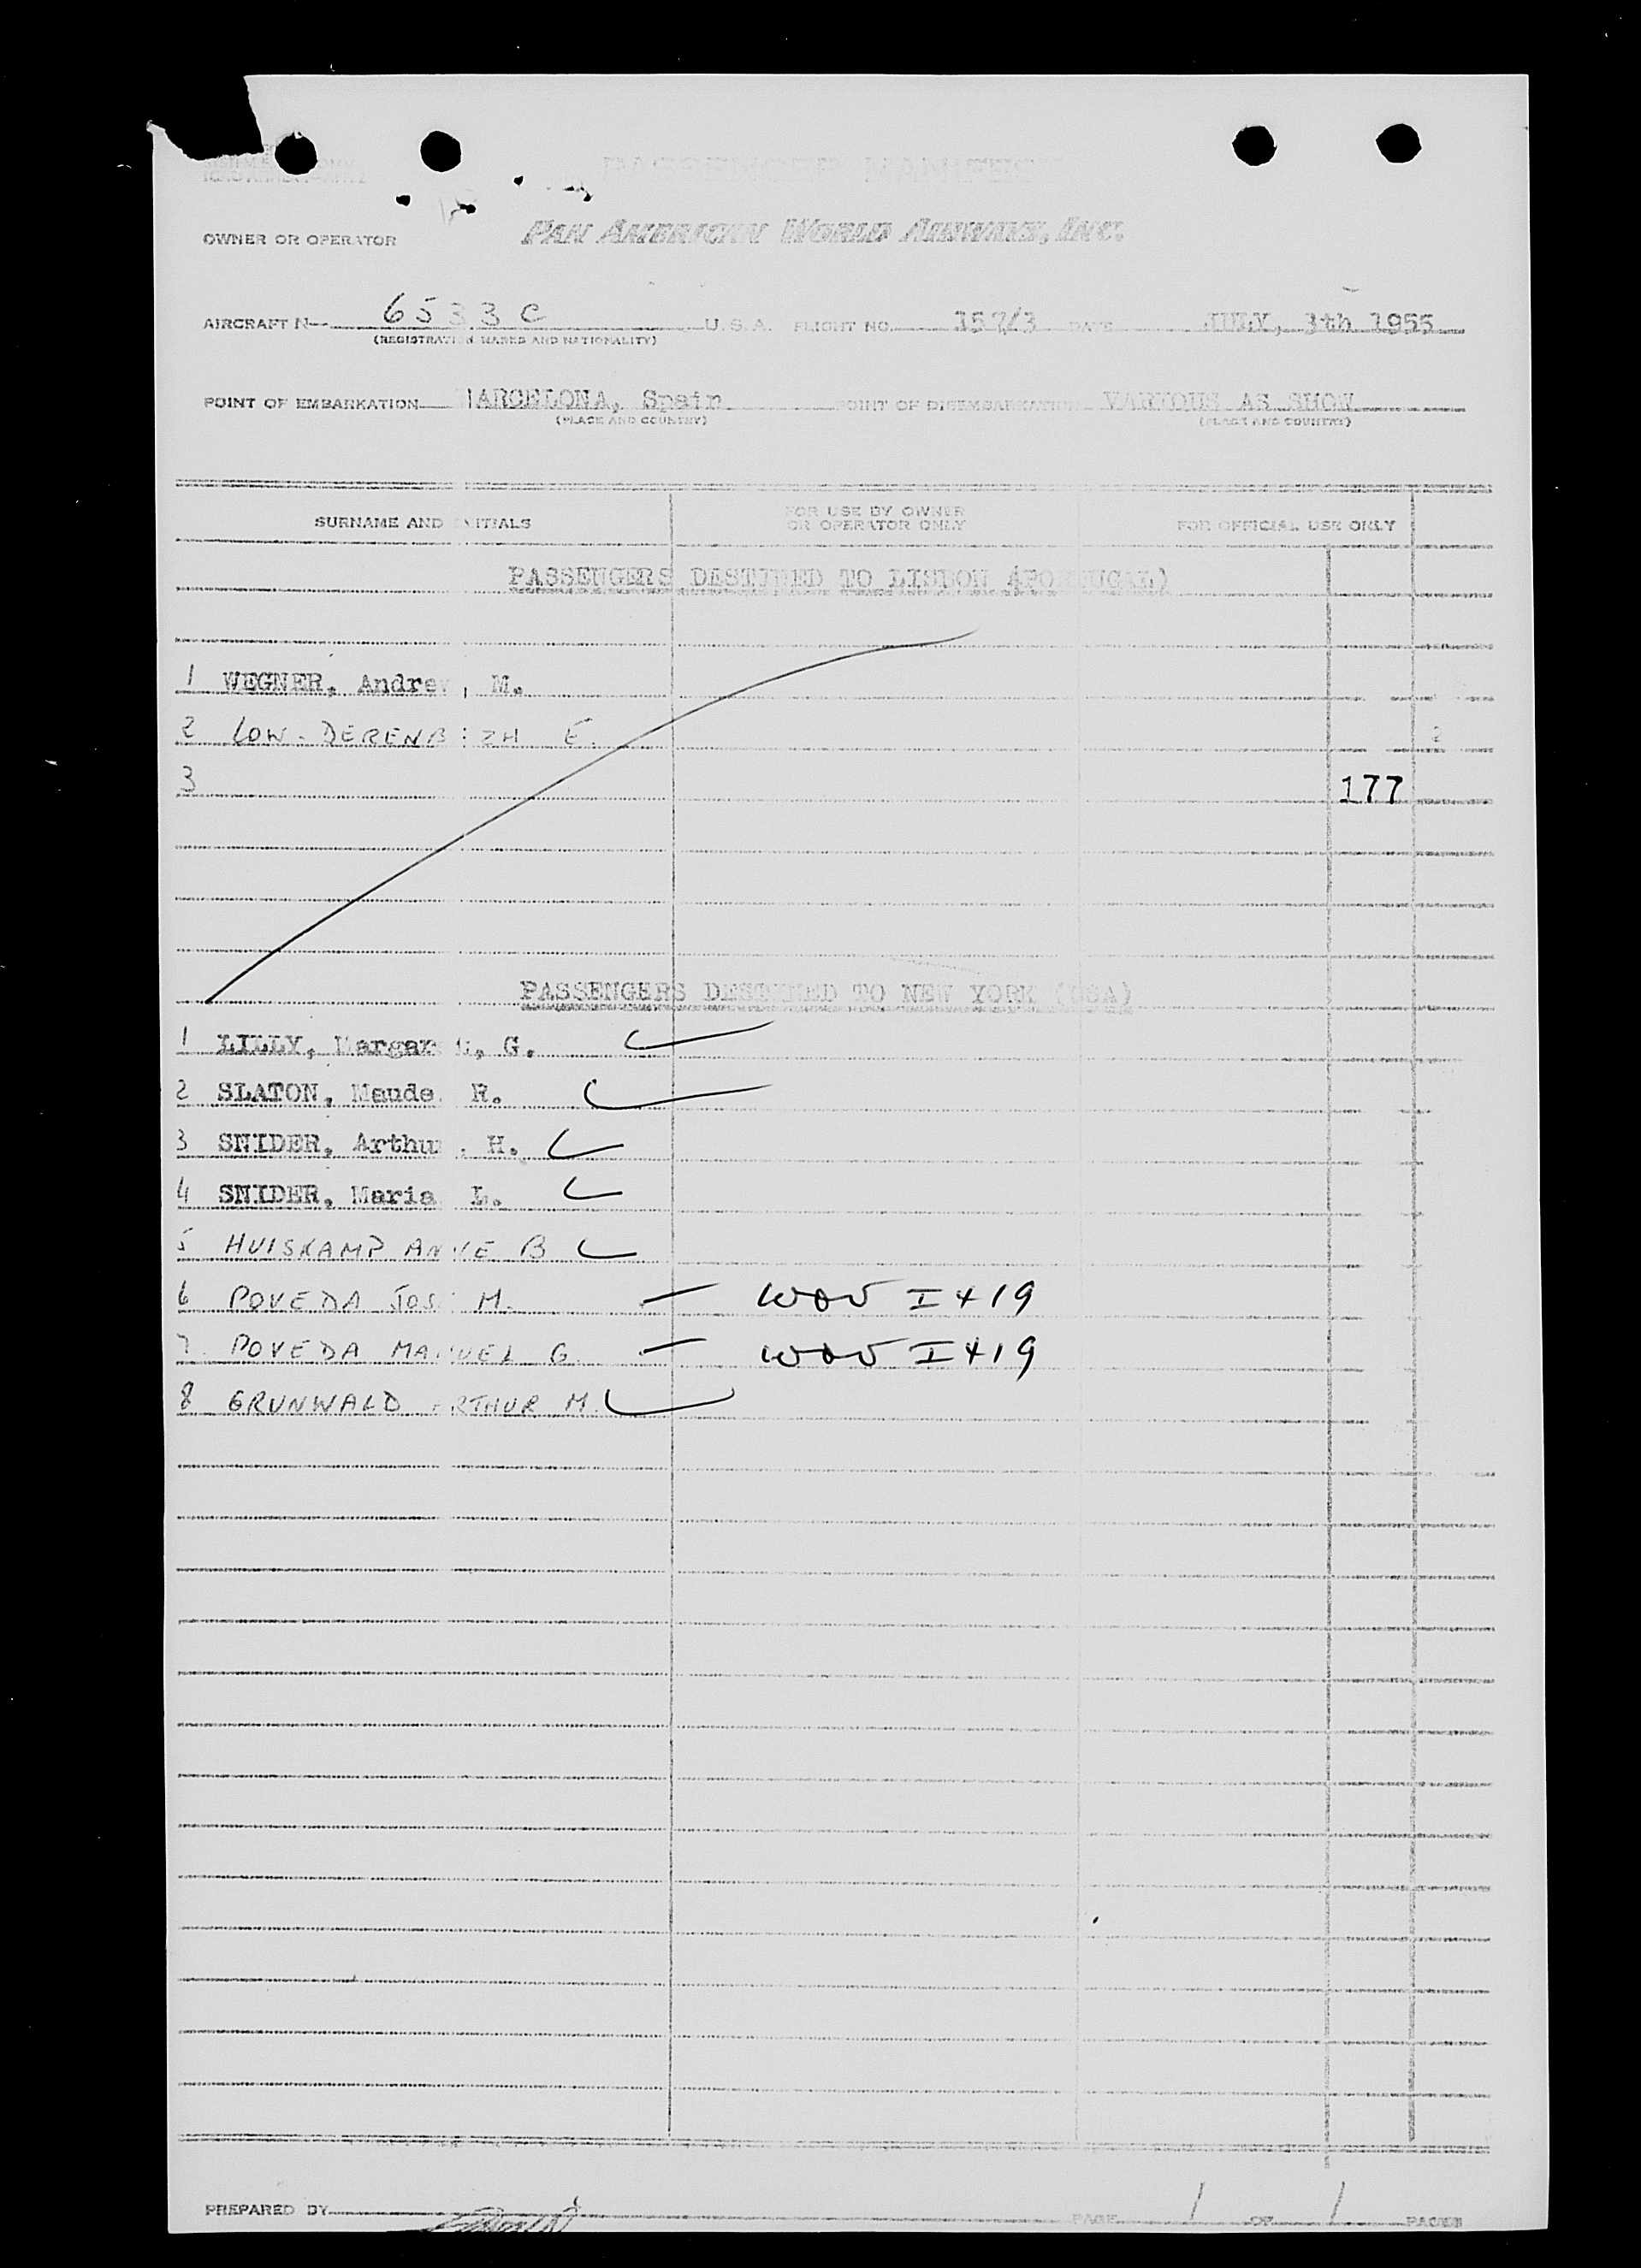 PASSENGER MANIFEST
OWNER OR OPERATOR PAN AMERICAN WORLD AIRWAYS, INC.
AIRCRAFT N 6533C U.S.A. FLIGHT NO. 157/3 DATE JULY, 3th 1955
(REGISTRATION MARKS AND NATIONALITY)
POINT OF EMBARKATION BARCELONA, Spain POINT OF DISEMBARKATION VARIOUS AS SHOW
(PLACE AND COUNTRY) (PLACE AND COUNTRY)
SURNAME AND INITIALS FOR USE BY OWNER OR OPERATOR ONLY FOR OFFICIAL USE ONLY
PASSENGERS DESTINED TO LISBON (PORTUGAL)
1 WEGNER, Andrew, M.
2 E.
3 177
PASSENGERS DESTINED TO NEW YORK (USA)
1 LILLY, Margaret, G.
2 SLATON, Maude R.
3 SNIDER, Arthur. H.
4 SNIDER, Maria L.
5 HUISKAMP ANNE B
6 POVEDA JOSE M. WOV I419
7 POVEDA MANUEL G. WOV I419
8 GRUNWALD ARTHUR M.
PREPARED BY PAGE 1 OF 1 PAGES